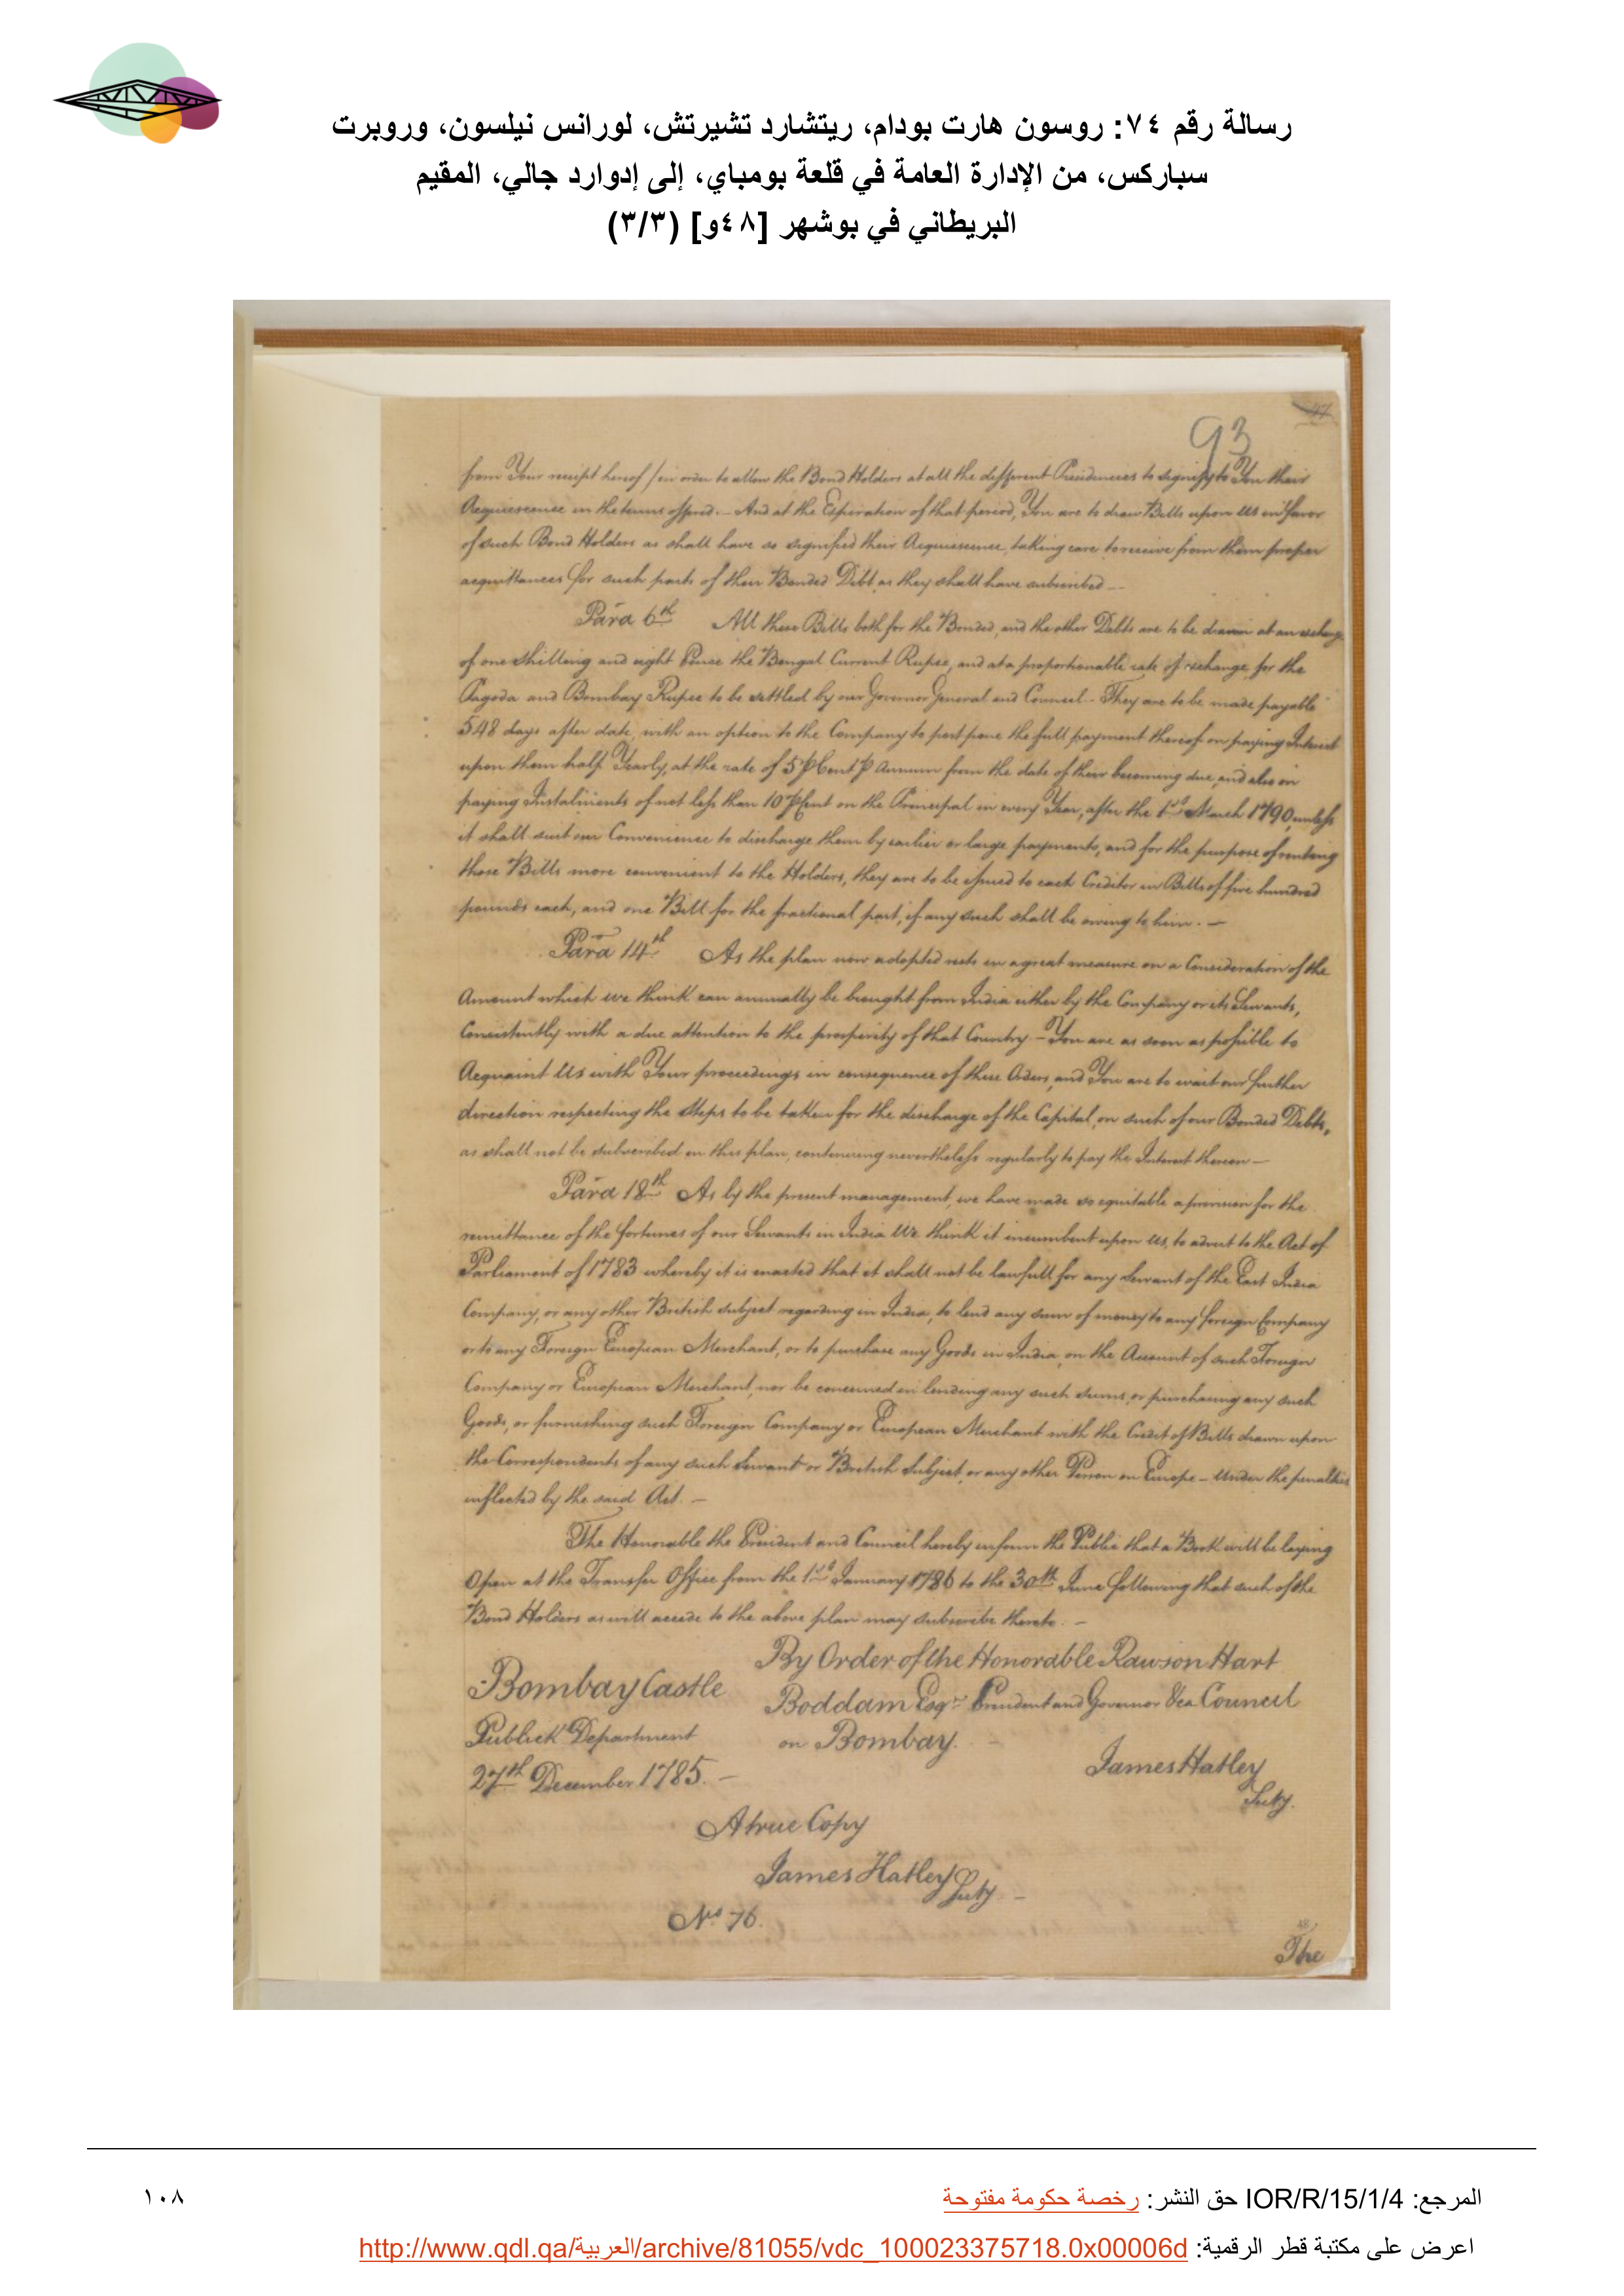 رسالة رقم ٧٤: روسون هارت بودام، ريتشارد تشيرتش، لورانس نيلسون، وروبرت
سباركس، من الإدارة العامة في قلعة بومباي، إلى إدوارد جالي، المقيم
البريطاني في بوشهر [٤٨و] (٣/٣)
47
93
from Your receipt hereof / in order to allow the Bond Holders at all the different Presidencies to signify to You their
Acquiescence in the terms offered. — And at the Expiration of that period, You are to draw Bills upon Us in favor
of such Bond Holders as shall have so signified their Acquiescence, taking care to receive from them proper
acquittances for such parts of their Bonded Debt as they shall have subscribed —
Para 6th All these Bills both for the Bonded, and the other Debts are to be drawn at an exchange
of one Shilling and eight Pence the Bengal Current Rupee, and at a proportionable rate of exchange for the
Pagoda and Bombay Rupee to be settled by our Governor General and Council — They are to be made payable
548 days after date, with an option to the Company to postpone the full payment thereof on paying Interest
upon them half Yearly, at the rate of 5 P Cent P Annum from the date of their becoming due, and also on
paying Instalments of not less than 10 P Cent on the Principal in every Year, after the 1st March 1790, unless
it shall suit our Convenience to discharge them by earlier or large payments, and for the purpose of rendering
those Bills more convenient to the Holders, they are to be issued to each Creditor in Bills of five hundred
pounds each, and one Bill for the fractional part, if any such shall be owing to him. —
Para 14th As the plan now adopted rests in a great measure on a Consideration of the
Amount which we think can annually be brought from India either by the Company or its Servants,
Consistently with a due attention to the prosperity of that Country — You are as soon as possible to
Acquaint Us with Your proceedings in consequence of these Orders, and You are to wait our further
direction respecting the Steps to be taken for the discharge of the Capital, on such of our Bonded Debts,
as shall not be subscribed on this plan, continuing nevertheless regularly to pay the Interest thereon —
Para 18th As by the present management, we have made so equitable a provision for the
remittance of the fortunes of our Servants in India We think it incumbent upon us, to advert to the Act of
Parliament of 1783 whereby it is enacted that it shall not be lawfull for any Servant of the East India
Company, or any other British subject regarding in India, to lend any sum of money to any foreign Company
or to any Foreign European Merchant, or to purchase any Goods in India, on the Account of such Foreign
Company or European Merchant, nor be concerned in lending any such sums, or purchasing any such
Goods, or furnishing such Foreign Company or European Merchant with the Credit of Bills drawn upon
the Correspondents of any such Servant or British Subject, or any other Person on Europe — Under the penalties
inflected by the said Act. —
The Honorable the President and Council hereby inform the Public that a Book will be laying
Open at the Transfer Office from the 1st January 1786 to the 30th June following that such of the
Bond Holders as will accede to the above plan may subscribe thereto. —
By Order of the Honorable Rawson Hart
Boddam Esqr President and Governor &ca Council
on Bombay.
Bombay Castle
Publick Department
27th December 1785. —
James Hatley
Secty.
A true Copy
James Hatley Secty —
No 76.
48
The
المرجع: IOR/R/15/1/4 حق النشر: رخصة حكومة مفتوحة
١٠٨
اعرض على مكتبة قطر الرقمية: http://www.qdl.qa/العربية/archive/81055/vdc_100023375718.0x00006d